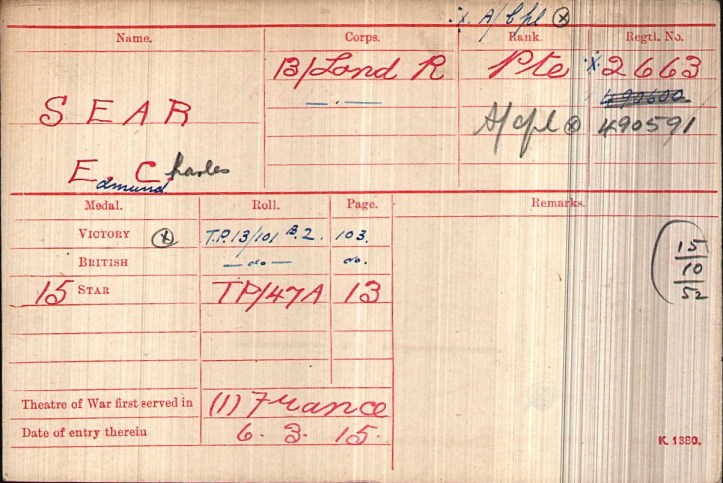 ·/· A/Cpl ⊗
Name. Corps. Rank. Regtl. No.
13/Lond R Pte ·/· 2663
— · — 490600
SEAR A/Cpl ⊗ 490591
E. Charles
Edmund
Medal. Roll. Page. Remarks.
VICTORY ⊗ T.P. 13/101 B.2. 103.
BRITISH — do — do.
15 STAR TP/47A 13
15
10
52
Theatre of War first served in (1) France
Date of entry therein 6. 3. 15.
K. 1380.